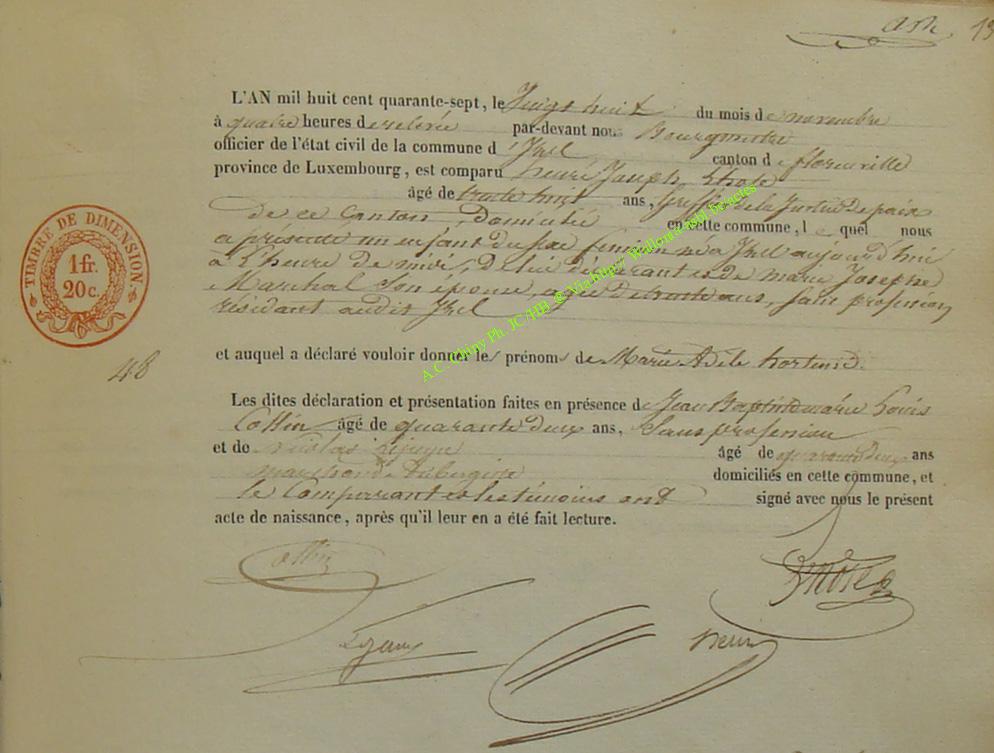 19
L'AN mil huit cent quarante-sept, le Vingt huit du mois de novembre
à quatre heures de relevée par-devant nous Bourgmestre
officier de l'état civil de la commune d'Izel, canton de florenville
province de Luxembourg, est comparu henri Joseph
âgé de trente huit ans, Greffier de la Justice de paix
de ce Canton, Domicilié en cette commune, le quel nous
a présenté un enfant du sexe feminin né a Izel aujourd'hui
a l'heure de midi, de lui déclarant et de marie Josephe
Marchal son épouse, agée de trente ans, sans profession
résidant audit Izel
TIMBRE DE DIMENSION
1 fr.
20 c.
48
et auquel a déclaré vouloir donner les prénoms de Marie Adèle hortense.
Les dites déclaration et présentation faites en présence de Jean Baptiste marie Louis
Collin âgé de quarante deux ans, Sans profession
et de Nicolas Lejeune âgé de quarante deux ans
marchand Aubergiste domiciliés en cette commune, et
le Comparant et les témoins ont signé avec nous le présent
acte de naissance, après qu'il leur en a été fait lecture.
Collin
Lejeune
A.C. Chiny Ph. JC/HB @ Via http://Wallonia-asbl.be/actes